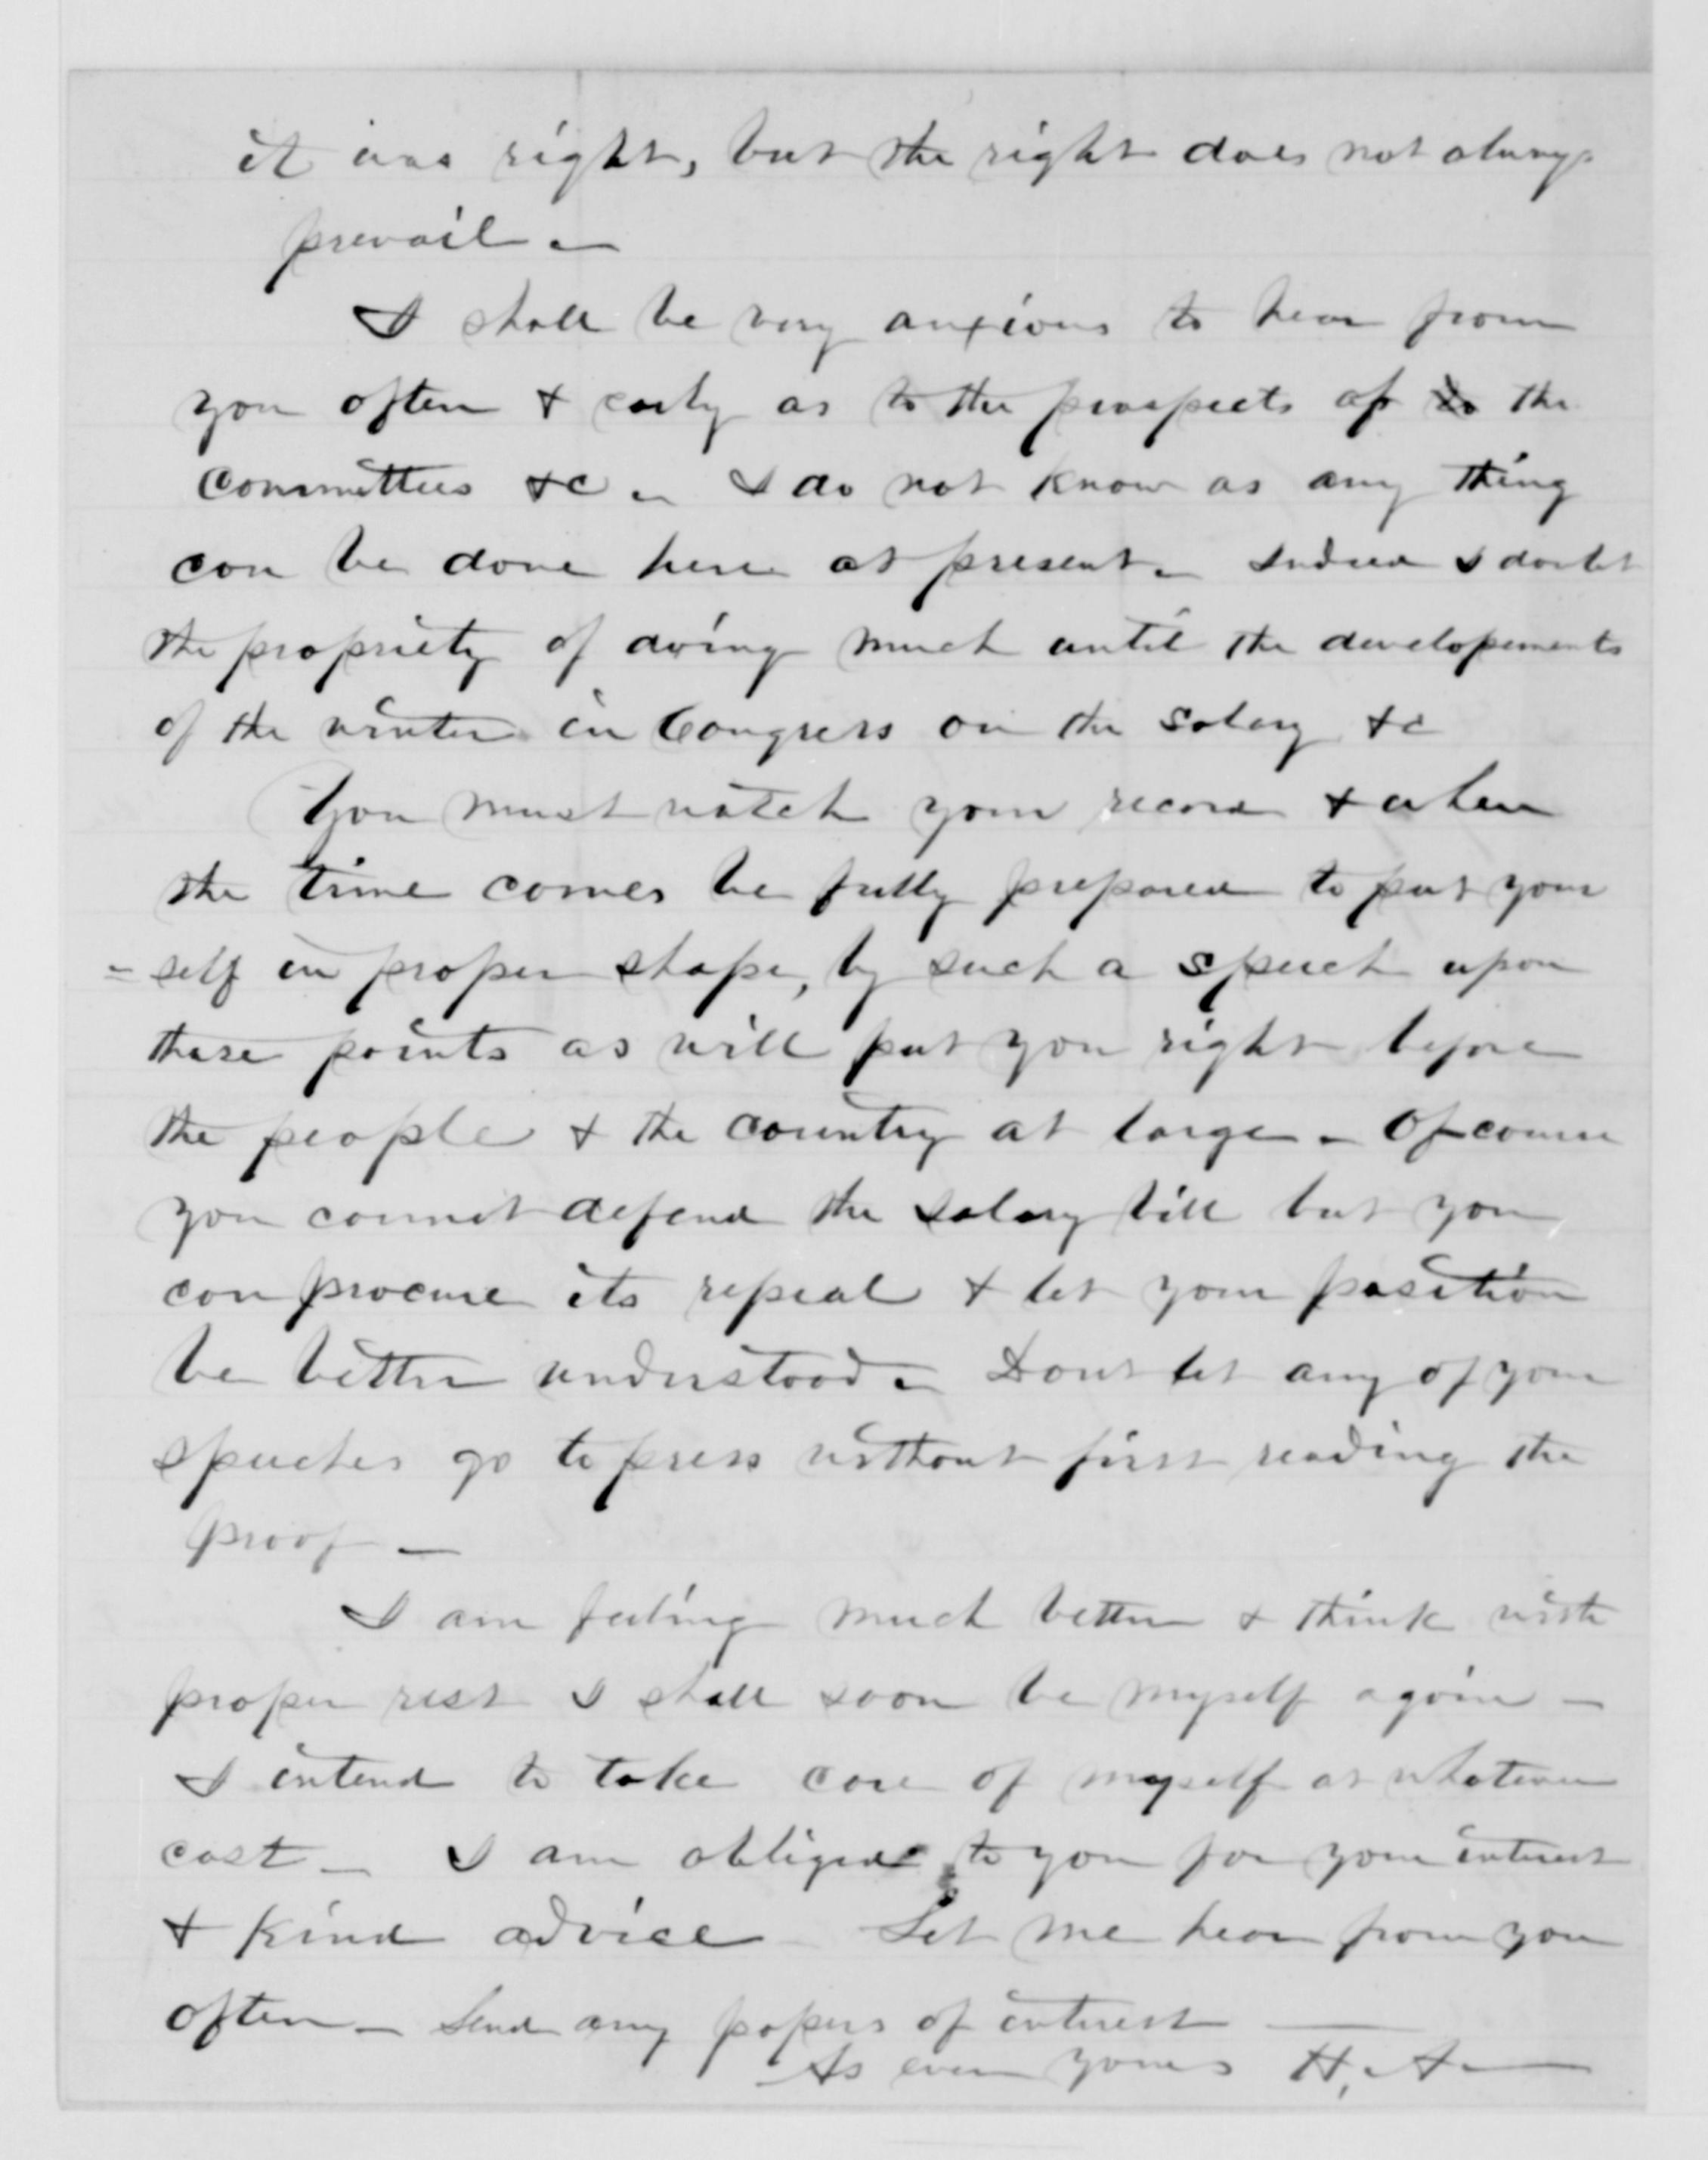 it was right, but the right does not always
prevail –
I shall be very anxious to hear from
you often & early as to the prospects of to the
Committees &c – I do not know as any thing
can be done here at present – Indeed I doubt
the propriety of doing much until the developements
of the winter in Congress on the salary &c
You must watch your record & when
the time comes be fully prepared to put your
=self in proper shape, by such a speech upon
these points as will put you right before
the people & the country at large – Of course
you cannot defend the salary bill but you
can procure its repeal & let your position
be better understood – Dont let any of your
speeches go to press without first reading the
proof –
I am feeling much better & think with
proper rest I shall soon be myself again –
I intend to take care of myself at whatever
cost – I am obliged to you for your interest
& kind advice – Let me hear from you
often – Send any papers of interest –
As ever yours H. A –